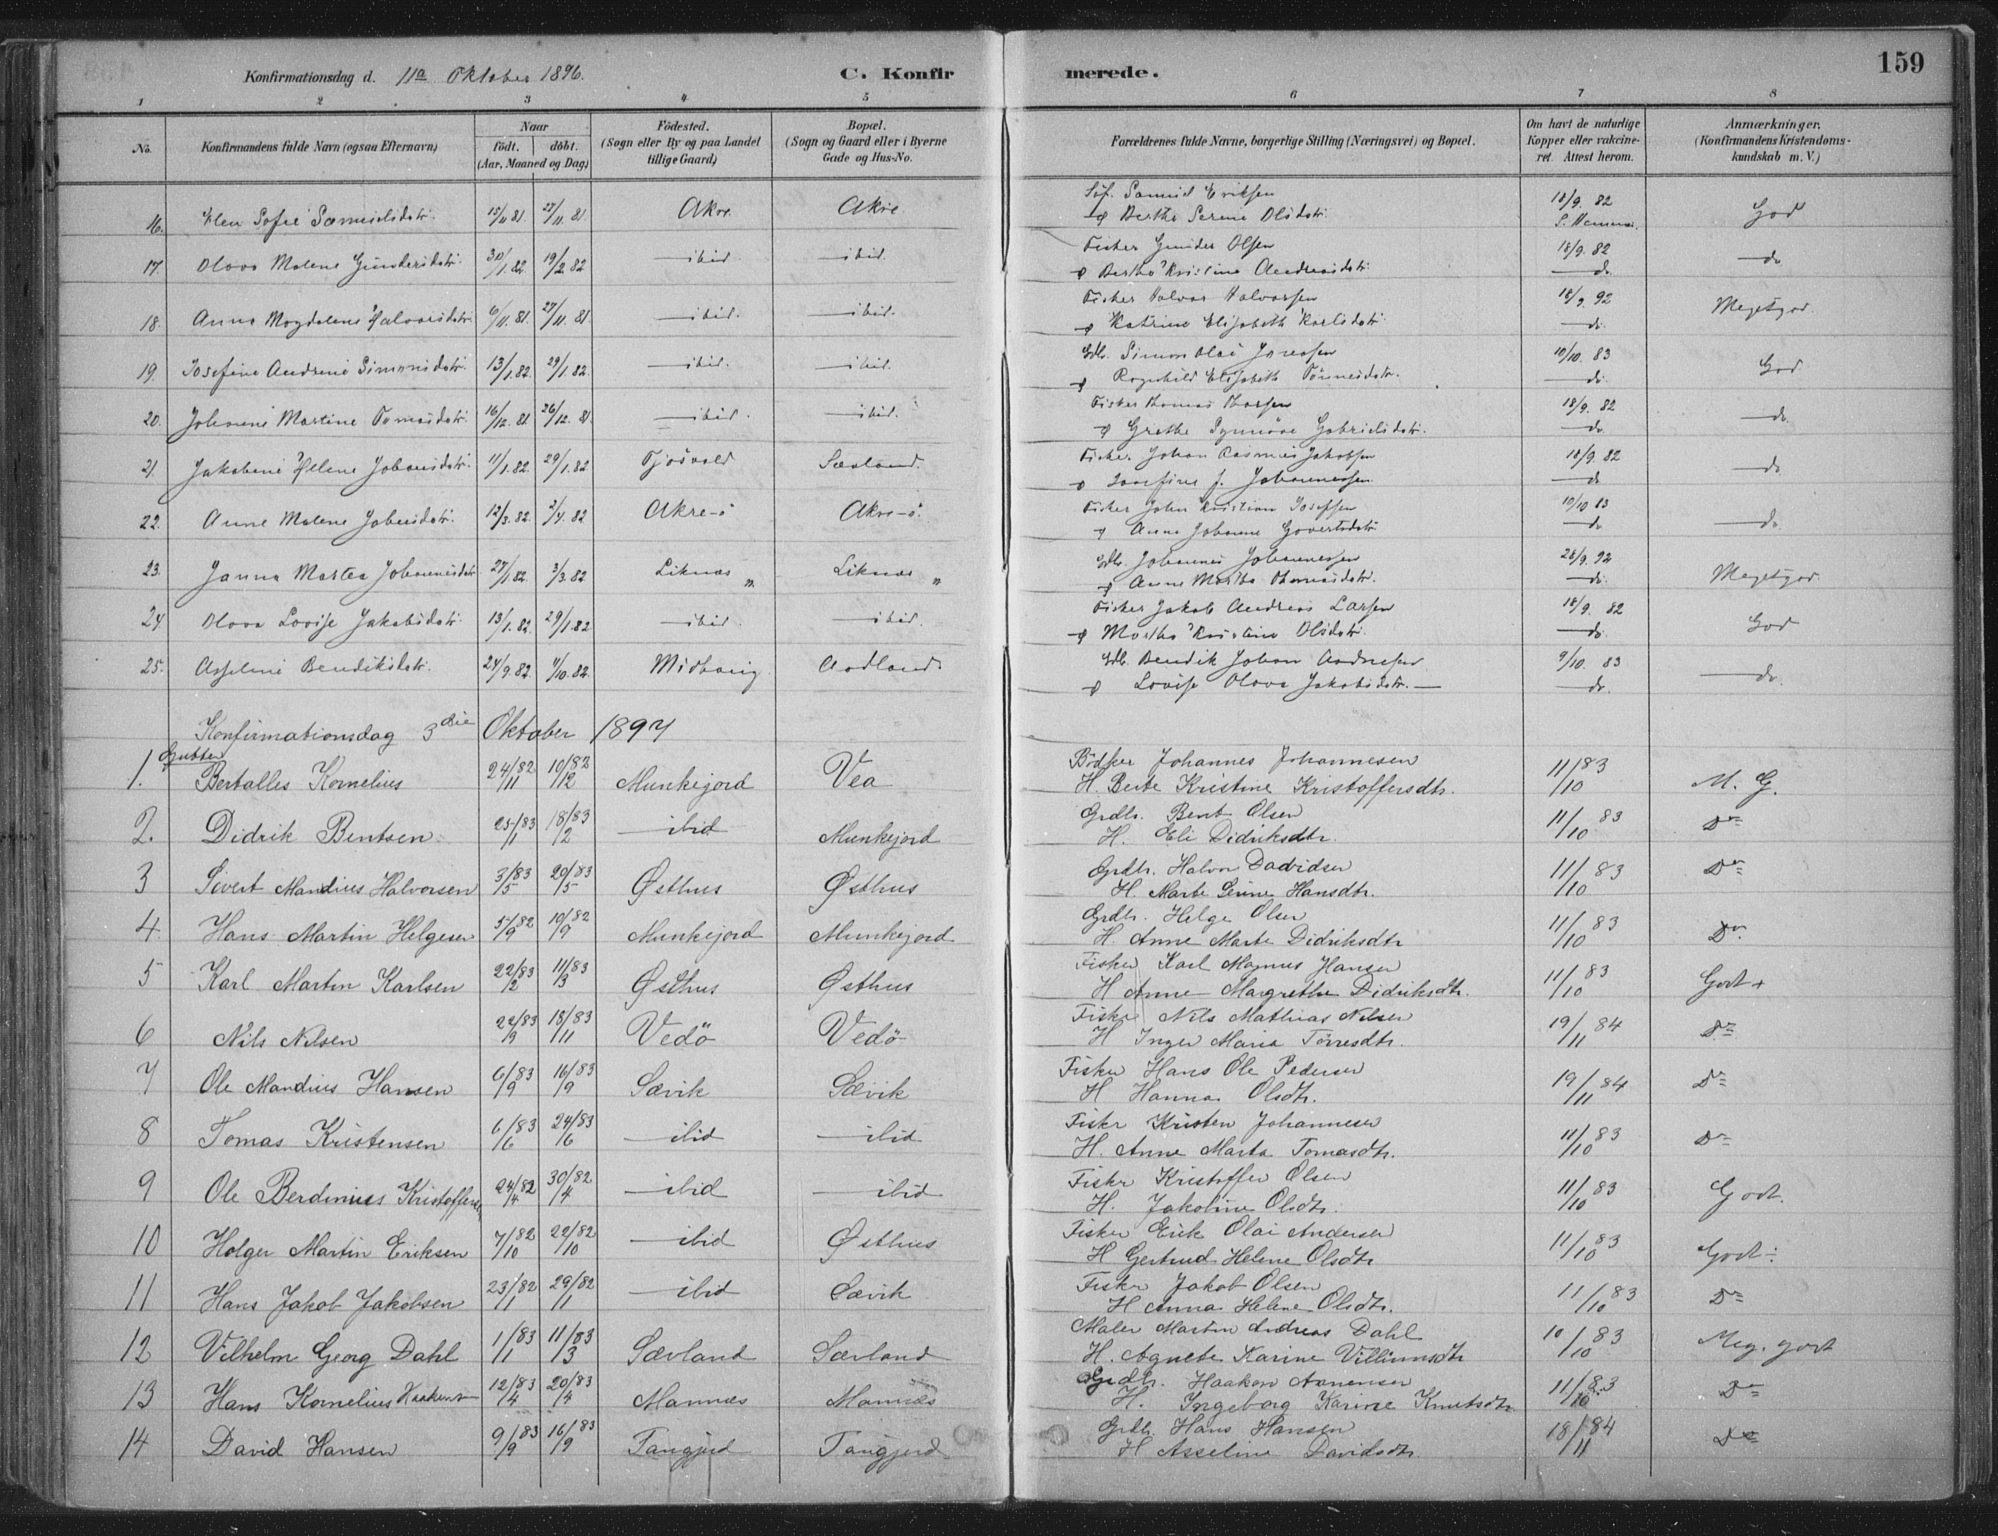 159
Konfirmationsdag d. 11te Oktober 1896.
C. Konfirmerede.
1 2 3 4 5 6 7 8
No.
Konfirmandens fulde Navn (ogsaa Efternavn)
Naar
født. døbt.
(Aar, Maaned og Dag)
Fødested.
(Sogn eller By og paa Landet tillige Gaard)
Bopæl.
(Sogn og Gaard eller i Byerne Gade og Hus-No.
Forældrenes fulde Navne, borgerlige Stilling (Næringsvei) og Bopæl.
Om havt de naturlige Kopper eller vakcineret. Attest herom.
Anmærkninger.
(Konfirmandens Kristendomskundskab m. V.)
16. Elen Sofie Samuelsdtr. 15/11 81. 27/11. 81. Akre Akre Samuel Eriksen 18/9. 82 God
Berthe Serine Olsdtr.
17. Olava Malene Gundersdtr. 30/1. 82. 19/2 82 ibid. ibid. Fisker Gunder Olsen 18/9. 82 do
Bertha Kristine Andreasdtr. do
18. Anna Magdalena Halvorsdtr. 6/11. 81. 27/11. 81. ibid. ibid. Fisker Halvor Halvorsen 18/9. 92 Megetgod.
Katrine Elisabeth Karlsdtr. do.
19. Josefine Andrine Simonsdtr. 13/1. 82. 29/1. 82. ibid. ibid. Gdb. Simon Olai 10/10. 83 God
Ragnhild Elisabeth Tønnesdtr. do.
20. Johanne Martine Tomasdtr. 16/12. 81. 26/12. 81. ibid. ibid. Fisker Thomas 18/9. 82 do.
Grethe Synnøve Gabrielsdtr. do.
21. Jakobine Helene Johansdtr. 11/1. 82. 29/1. 82 Tjøsvold Sæveland. Fisker Johan Rasmus Jakobsen 18/9. 82 do
Josefine J. Johannessen do
22. Anne Malene Johnsdtr. 12/3. 82. 2/4. 82 Akre-ø Akre-ø. Fisker John Kristian Josefsen 10/10 83
Anna Johanne Govertsdtr. do do
23. Janna Martea Johannesdtr. 27/1. 82. 3/3. 82 Liknæs " Liknæs " Gdb. Johannes Johannessen 28/9. 92 Megetgod.
Anne Martha Thomasdtr. do.
24. Olava Lovise Jakobsdtr. 13/1. 82. 29/1. 82 ibid. ibid. Fisker Jakob Andreas Larsen 18/9. 82 God
Martha Kristine Olsdtr. do.
25. Asseline Bendiksdtr. 24/9. 82 /10. 82. Midbøvig Aadland Gdb. Bendik Johan 9/10. 83 do.
Lovise Olava Jakobsdtr. do.
Konfirmationsdag 3die Oktober 1897
Gutter
1. Bertalles Kornelius 24/82 11 10/82 12 Munkejord Vea Bødker Johannes Johannesen 11/83 10 M. G.
H. Berte Kristine Kristoffersdtr.
2. Didrik Bentsen 25/83 1 18/83 2 ibid Munkejord Grdbr. Bent Olsen 11/10 83 Do
H. Eli Didriksdtr.
3 Sivert Mandius Halvorsen 3/83 5 20/83 5 Østhus Østhus Grdbr. Halvor Davidsen 11/10 83 Do
H. Marte Serine Hansdtr.
4. Hans Martin Helgesen 5/82 9 19/82 9 Munkejord Munkejord Grdbr. Helge Olsen 11/10 83 Do.
H. Anne Marte Didriksdtr
5 Karl Martin Karlsen 22/83 2 11/83 3 Østhus Østhus Fisker Karl Magnus Hansen 11/10 83 Godt +
H Anne Margrethe Didriksdtr.
6 Nils Nilsen 22/83 9 18/83 11 Vedø Vedø Fisker Nils Mathias Nilsen 19/11 84 Do
H Inger Maria Tørresdtr.
7 Ole Mandius Hansen 6/83 9 16/83 9 Sævik Sævik Fisker Hans Ole Pedersen 19/11 84 Do
H Hanna Olsdtr.
8 Tomas Kristensen 6/83 6 24/83 6 ibid ibid Fisker Kristen Johannesen 11/10 83 Do
H. Anne Marta Tomasdtr.
9 Ole Berdinius Kristoffersen 24/82 4 30/82 4 ibid ibid Fisker Kristoffer Olsen 11/10 83 Godt.
H. Jakobine Olsdtr.
10 Holger Martin Eriksen 7/82 10 22/82 10 ibid Østhus Fisker Erik Olai Andersen 11/10 83 Godt ÷
H Gertrud Helene Olsdtr
11 Hans Jakob Jakobsen 23/82 1 29/82 1 ibid Sævik Fisker Jakob Olsen 11/10 83 Do
H Anna Helene Olsdtr.
12 Vilhelm Georg Dahl 1/83 1 11/83 3 Sævland Sævland Maler Martin Andreas Dahl 10/10 83 Meg. godt
H. Agnete Karine Villumsdtr
13 Hans Kornelius Haakens 12/83 4 20/83 4 Mannæs Mannæs Grdbr. Haakon 11/10 83 Do
H. Ingeborg Karine Knutsdtr
14 David Hansen 9/83 9 16/83 9 Tangjerd Tangjerd Grdb. Hans Hansen 18/11 84 Do
H Asseline Davidsdtr.